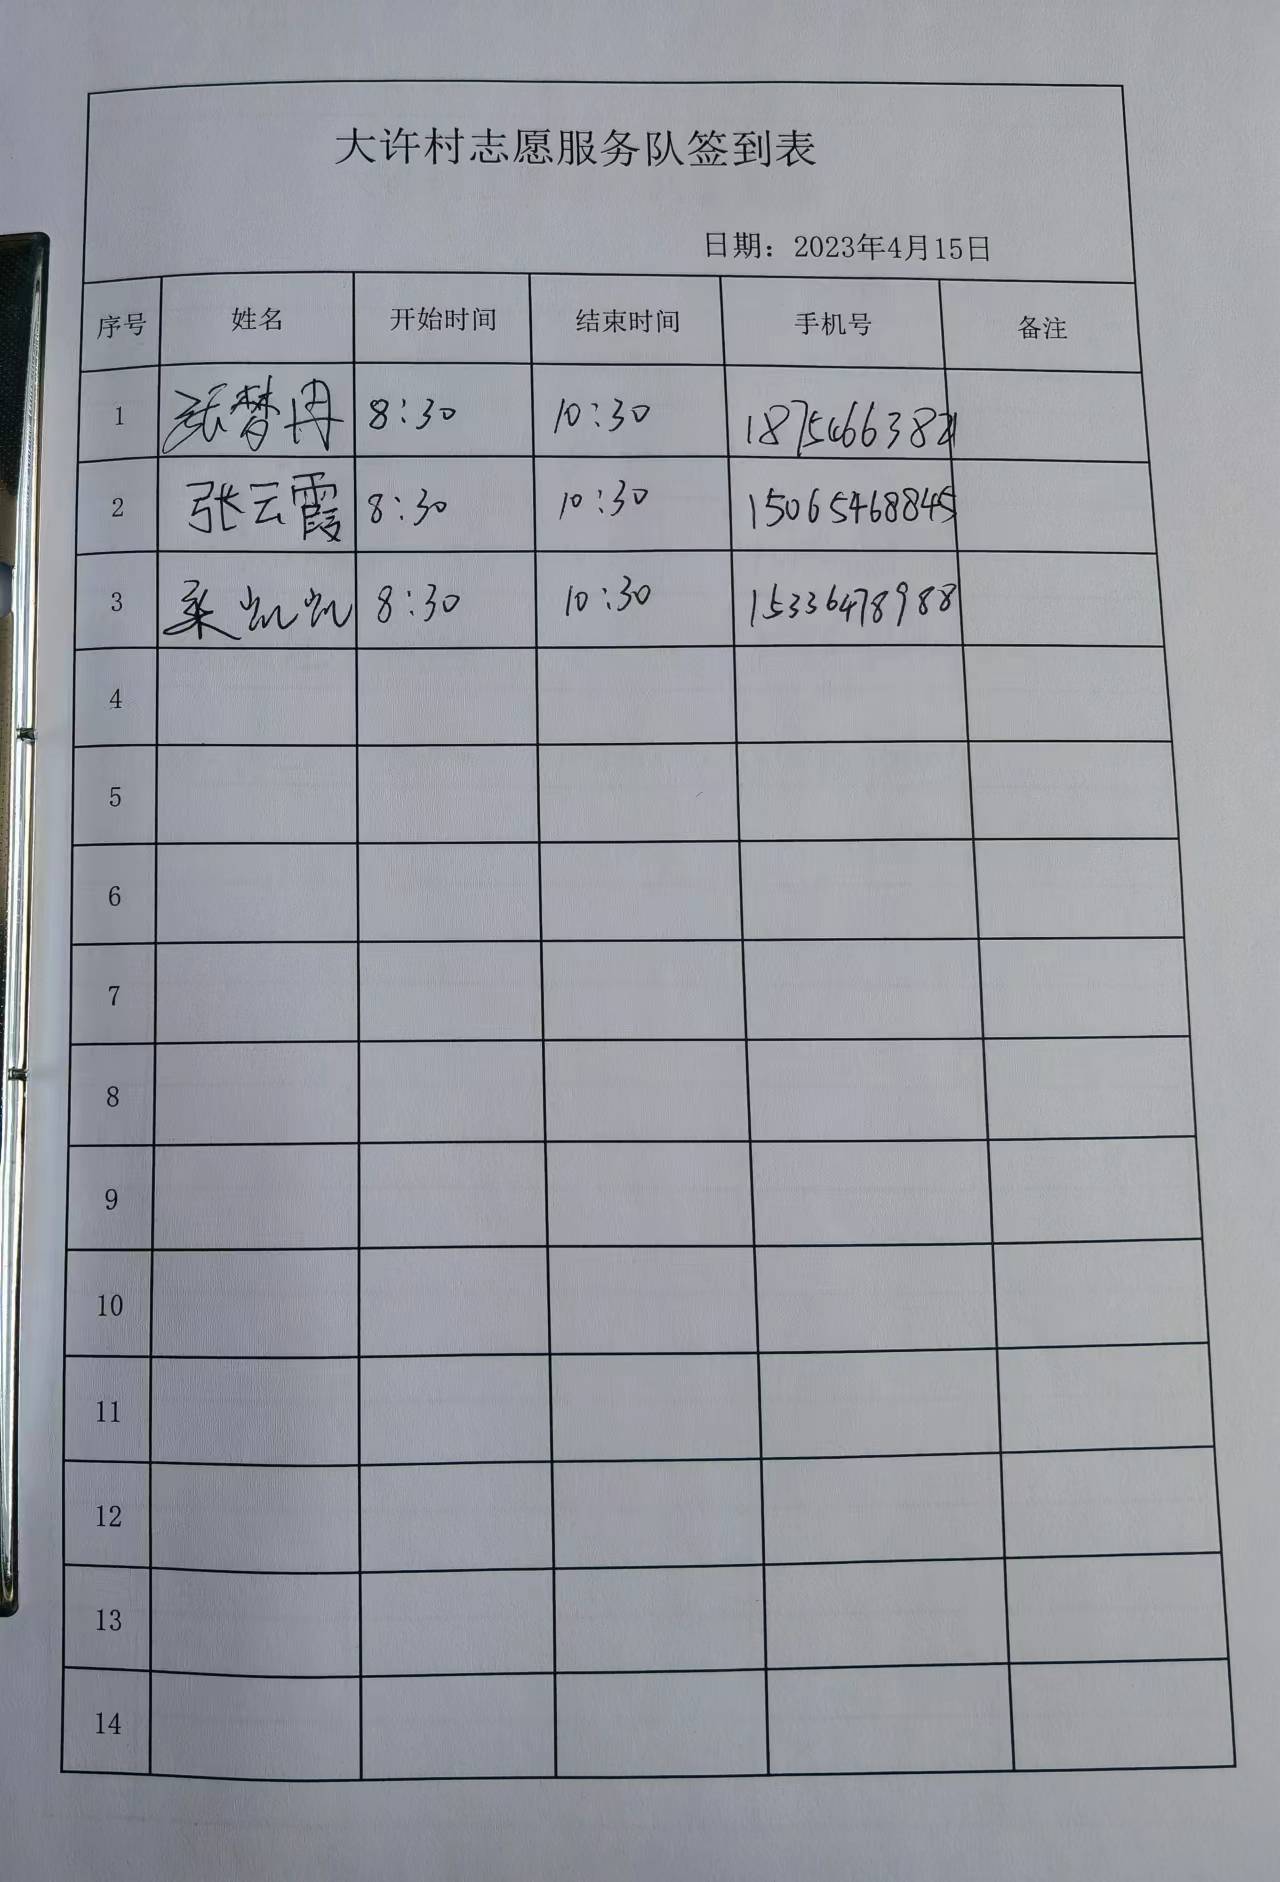 大许村志愿服务队签到表
日期：2023年4月15日
序号 姓名 开始时间 结束时间 手机号 备注
1 张梦冉 8:30 10:30
2 张云霞 8:30 10:30 15065468845
3 凯凯 8:30 10:30 15336478988
4
5
6
7
8
9
10
11
12
13
14